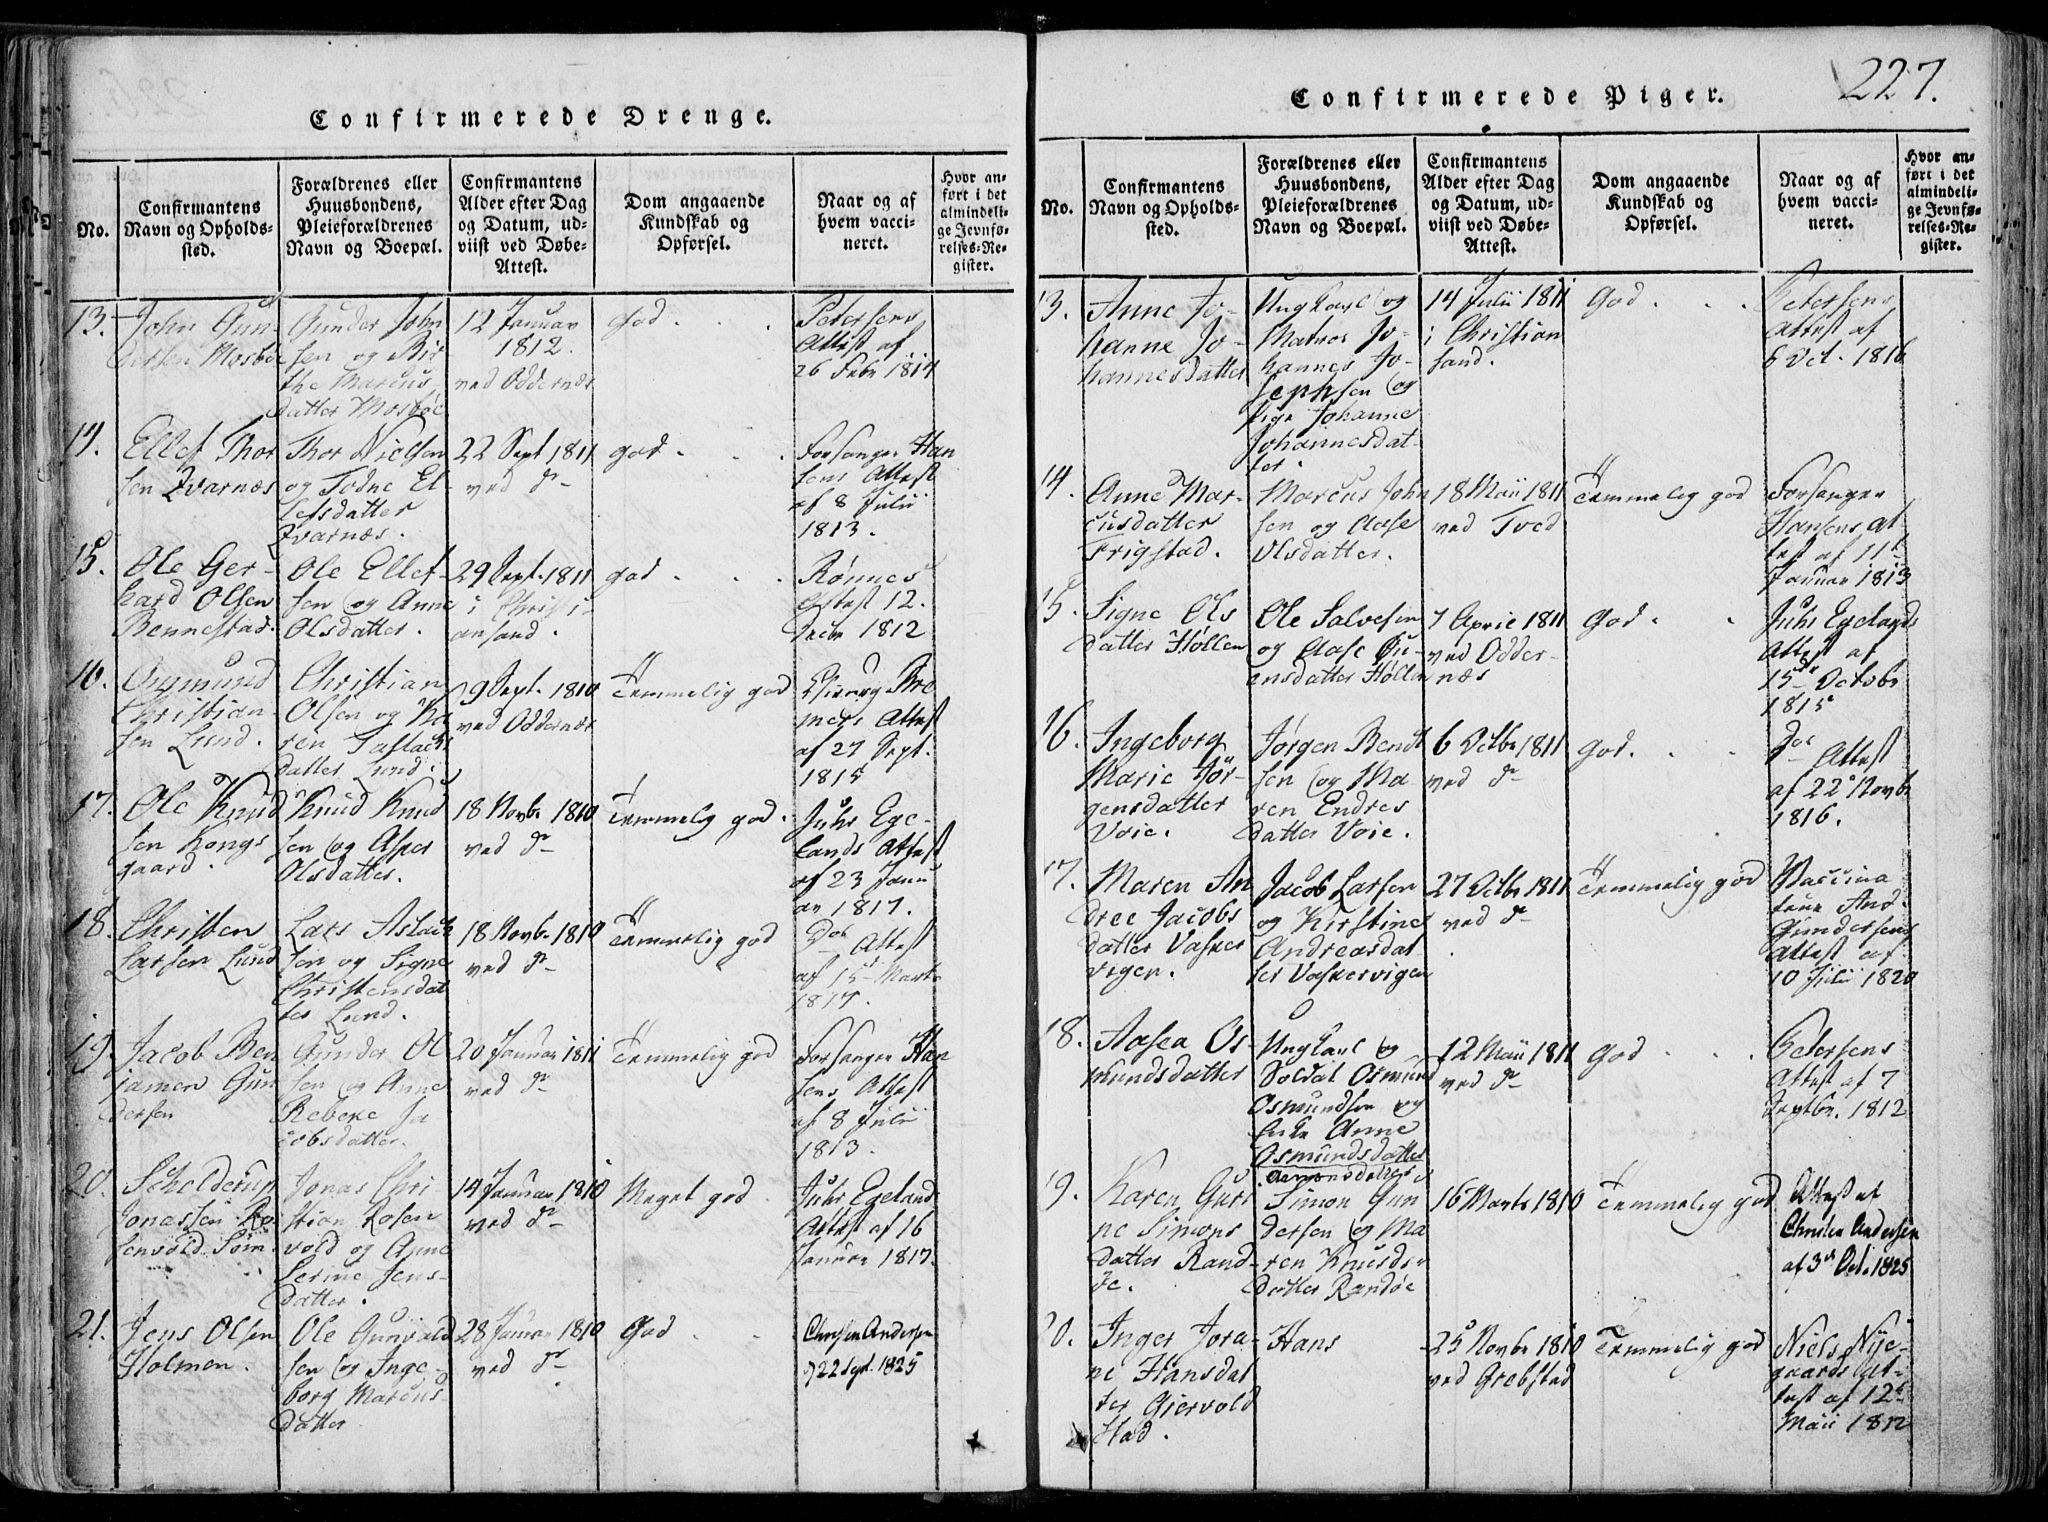 Confirmerede Drenge.
No.
Confirmantens
Navn og Opholds-
sted.
Forældrenes eller
Huusbondens,
Pleieforældrenes
Navn og Boepæl.
Confirmantens
Alder efter Dag
og Datum, ud-
viist ved Døbe-
Attest.
Dom angaaende
Kundskab og
Opførsel.
Naar og af
hvem vacci-
neret.
Hvor an-
ført i det
almindeli-
ge Jevnfø-
relses-Re-
gister.
13.
John Gun-
dersen Mosbø
Gunder John
sen og Bir
the Marcus
datter Mosbøe
12 Januar
1812.
ved Oddernæs
God
Petersens
Attest af
26 Febr 1814
14.
Ellef Thor
sen Qvarnæs
Thor Nielsen
og Todne El-
lefsdatter
Qvarnæs.
22 Sept 1811
ved do
god
Forsanger Han
sens Attest
af 8 Julii
1813.
15.
Ole Ger-
hard Olsen
Bennestad.
Ole Ellef-
sen og Anne
Olsdatter.
29 Sept. 1811
i Christi-
ansand.
god
Rønnes
Attest 12.
Decbr 1812
16.
Osmund
Christian
sen Lund.
Christian
Olsen og Ka
ren Taslachs
datter Lund.
29 Sept. 1810
ved Oddernæs
Temmelig god
mers Attest
af 27 Sept.
1815
17.
Ole Knud
sen Kongs
gaard.
Knud Knud
sen og Aser
Olsdatter.
18 Novb. 1810
ved do
Temmelig god.
Juhr Ege-
lands Attest
af 23 Janu
ar 1817.
18.
Christen
Larsen Lund
Lars Aslach
sen og Signe
Christensdat
ter Lund.
18 Novb. 1810
ved do
Temmelig god
Dos Attest
af 15 Marts
1817.
19.
Jacob Ben
jamen Gun
dersen
Gunder Ol
sen og Anne
Rebeke Ja
cobsdatter.
20 Januar 1811
ved do
Temmelig god
Forsanger Han
sens Attest
af 8 Julii
1813.
20.
Schelderup
Jonassen Ro
senvold Søm
Jonas Chri-
stian Rosen
vold og Anne
Serine Jens-
datter.
14 Januar 1810
ved do
Meget god
Juhr Egeland
Attest af 16
Januar 1817.
21.
Jens Olsen
Holmen.
Ole Gunvald
sen og Inge-
borg Marcus-
datter
28 Januar 1810
ved do
God
Christen Andersen
22 Sept. 1825
227.
Confirmerede Piger.
No.
Confirmantens
Navn og Opholds-
sted.
Forældrenes eller
Huusbondens,
Pleieforældrenes
Navn og Boepæl.
Confirmantens
Alder efter Dag
og Datum, ud-
viist ved Døbe-
Attest.
Dom angaaende
Kundskab og
Opførsel.
Naar og af
hvem vacci-
neret.
Hvor an-
ført i det
almindeli-
ge Jevnfø-
relses-Re-
gister.
13.
Anne Jo-
hanne Jo-
hannesdatter
Ungkarl og
Matros Jo-
hannes Jo-
sephsen og
Pige Johanne
Johannesdat-
ter.
14 Julii 1811
i Christian
sand.
God
Petersens
Attest af
6 Oct. 1816
14.
Anne Mar-
cusdatter
Frigstad.
Marcus John
sen og Aase
Olsdatter.
18 Maii 1811
ved Tved
Temmelig god
Forsanger
Hansens At
test af 11t
Januar 1813
15.
Signe Ols
datter Høllen
Ole Salvesen
og Aase Ju-
ensdatter Høllen
7 April 1811
ved Odder-
næs
God
Juhr Egelands
Attest af
15de Octobr
1815
16.
Ingeborg
Marie Jør-
gensdatter
Voie.
Jørgen Bendt
sen og Ma
ren Endres
datter Voie.
6 Octbr 1811
ved do
God.
Dos Attest
af 22 Novbr
1816.
17.
Maren An
dree Jacobs
datter Vasker
vigen.
Jacob Larsen
og Kirstine
Andreasdat
ter Vaskervigen
27 Octbr 1811
ved do
Temmelig god
Vaccina
teur And.
Gundersens
Attest af
10 Julii 1820
18.
Aasea Os-
mundsdatter
Ungkarl og
Soldat Osmund
Osmundsen og
Enke Anne
Osmundsdatter
Aanonsdatter
12 Maii 1811
ved do
God
Petersens
Attest af 7
Septbr. 1812
19.
Karen Guri
ne Simons
datter Rand-
øe.
Simon Gun
dersen og Ma
ren Knuds-
datter Randøe
16 Marts 1810
Temmelig god
Attest af
Christen Andersen
af 3de Oct. 1825
20.
Inger Jora-
ne Hansdat
ter Giervold
stad.
Hans
25 Novbr 1810
ved Grebstad
Temmelig god
Niels Nije-
gaards At-
test af 12te
Maii 1812